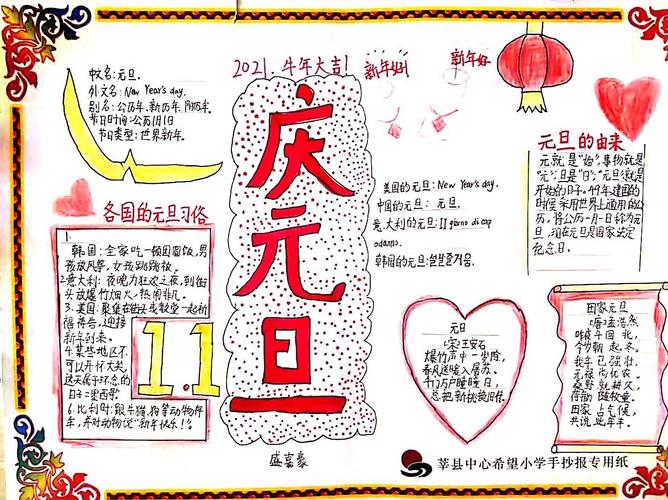 中文名:元旦.
外文名:New Year's day.
别名:公历年、新历年、阳历年.
节日时间:公历1月1日
节日类型:世界新年.
2021.牛年大吉!
新年好!
新年好
庆元旦
盛嘉豪
各国的元旦习俗
1.
韩国:全家吃一顿团圆饭,男
孩放风筝,女孩跳跳板.
2.意大利:夜晚为狂欢之夜,到街
头放爆竹烟火,热闹非凡.
3.美国:聚集在街头或教堂一起祈
福祷告,迎接
新年到来.
4.某些地区不
可以开怀大笑,
这天属于怀念的
日子:墨西哥.
6.比利时:跟牛猫,狗等动物拜
年,并对动物说"新年快乐!".
1.1
美国的元旦:New Year's day.
中国的元旦: 元旦.
意大利的元旦:Il giorno di cap
odanno.
韩国的元旦:
元旦的由来
元就是"始",事物就是
"元";旦是"日";"元旦"就是
开始的日子.49年建国的
时候采用世界上通用的公
历,将公历一月一日称为元
旦,现在元旦是国家法定
纪念日.
元日
(宋)王安石
爆竹声中一岁除,
春风送暖入屠苏.
千门万户曈曈日,
总把新桃换旧符.
田家元旦
(唐)孟浩然
昨夜斗回北,
今朝岁起东.
我年已强壮,
无禄尚忧农.
桑野就耕父,
荷锄随牧童.
田家占气候,
共说此年丰.
莘县中心希望小学手抄报专用纸